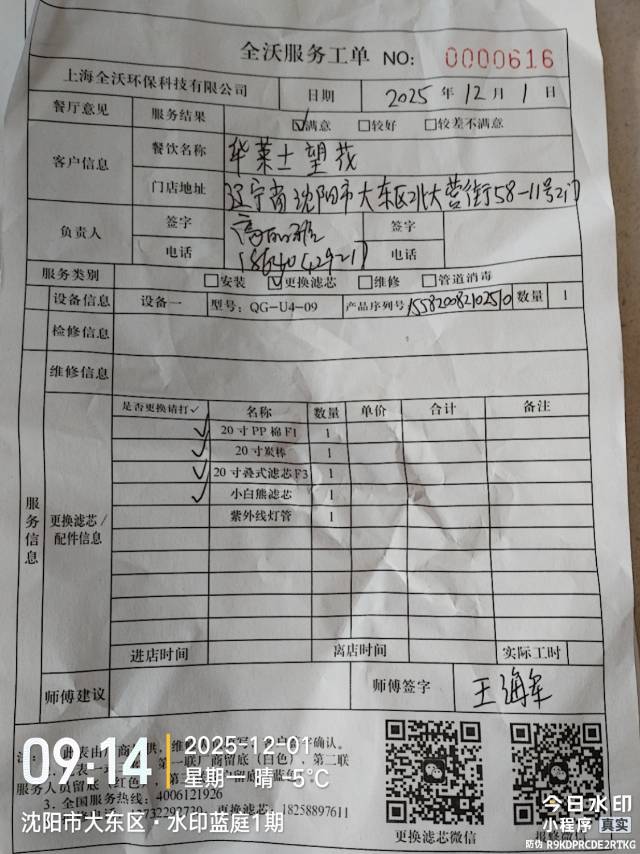 全沃服务工单 NO: 0000616
上海全沃环保科技有限公司 日期 2025 年 12 月 1 日
餐厅意见 服务结果 ☑满意 □较好 □较差不满意
客户信息 餐饮名称 华莱士望花
门店地址 辽宁省沈阳市大东区北大营街58-11号2门
负责人 签字 签字
电话 电话
服务类别 □安装 ☑更换滤芯 □维修 □管道消毒
设备信息 设备一 型号: QG-U4-09 产品序列号 155820082102510 数量 1
检修信息
维修信息
服务信息
更换滤芯/配件信息
是否更换请打✓ 名称 数量 单价 合计 备注
✓ 20寸PP棉F1 1
✓ 20寸炭棒 1
✓ 20寸叠式滤芯F3 1
✓ 小白熊滤芯 1
紫外线灯管 1
进店时间 离店时间 实际工时
师傅建议 师傅签字 王海军
注:
服务人员留底(红色),
3.全国服务热线: 4006121926
更换滤芯: 18258897611
更换滤芯微信 报修微信
09:14
2025-12-01
星期一 晴 -5℃
沈阳市大东区·水印蓝庭1期
今日水印
小程序 真实
防伪 R9KDPRCDE2RTKG